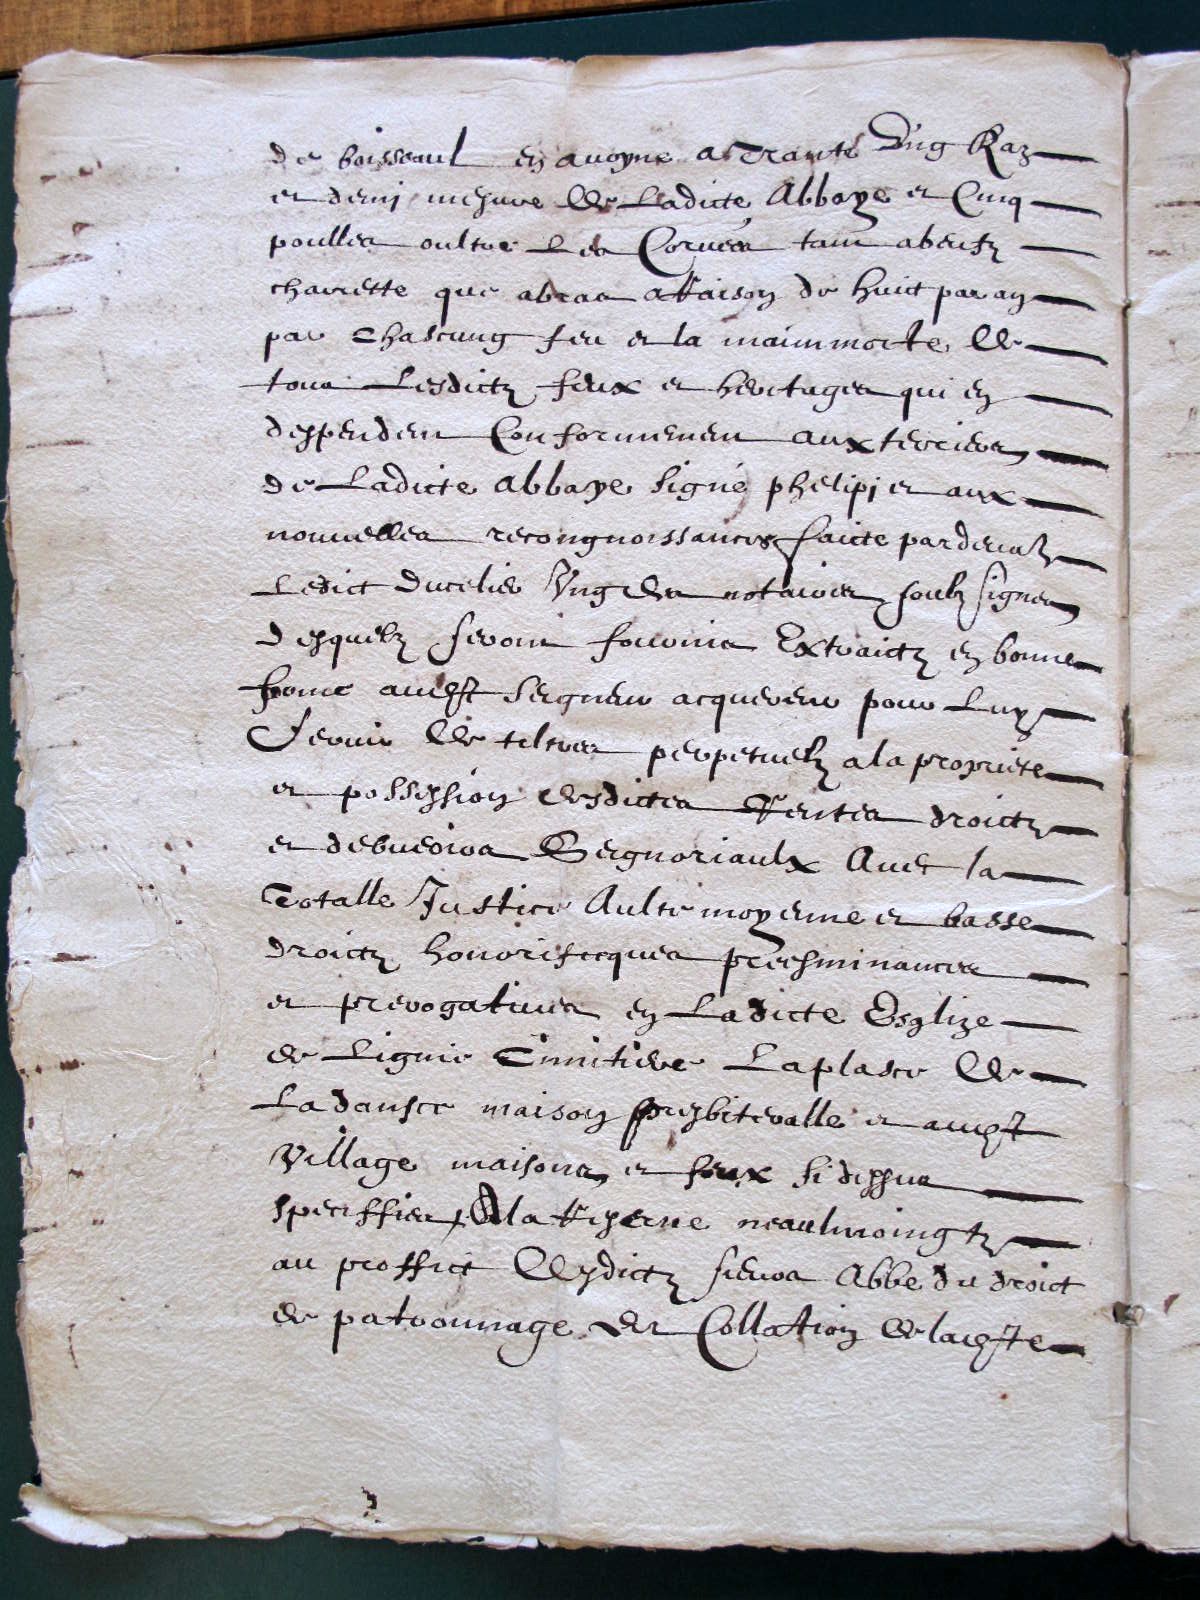 de boisseaul en avoyne a trante ung Raz
et demi mesure de Ladicte Abbaye et Cinq
poulles oultre Les Corvées tant abeufz
charrette que abras aRaison de huict par an
par Chascung feu et la mainmorte de
tous Lesdictz feux et heritages qui en
despendent Conformement aux terriers
de Ladicte Abbaye signé phelipi et aux
nouvelles recongnoissances faicte pardevat
Ledict Ducelier Ung des notaires soubzsignes
desquelz seront fournis Extraictz en bonne
forme audst seigneur acquereur pour Luy
servir de tiltres perpetuelz a la propriete
et possession desdictes Rentes droictz
et debvevoirs Seignoriaulx Avec la
Totalle Justice Aulte moyenne et basse
droictz honorificques preehminances
et prerogatives en Ladicte Esglize
de Lignie Cimitiere La plasce de
La dansce maison presbiteralle et audst
Village maisons et feux si dessus
speciffies Ala Reserve neaulmoingtz
au proffict desdictz sieurs Abbe du droict
de patronnage et Collation de ladste